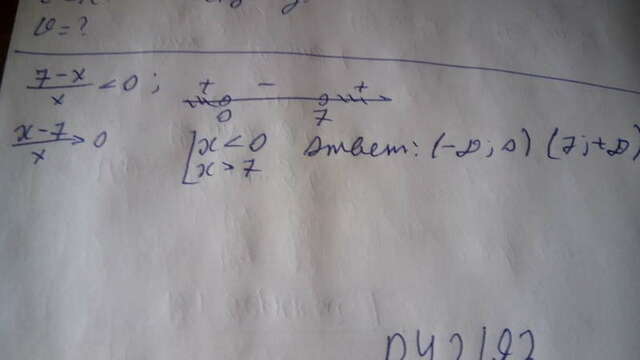 v = ?
7-x/x < 0 ; + - +
0 7
x-7/x > 0 [x < 0 Ответ: (-∞; 0) (7; +∞)
x > 7